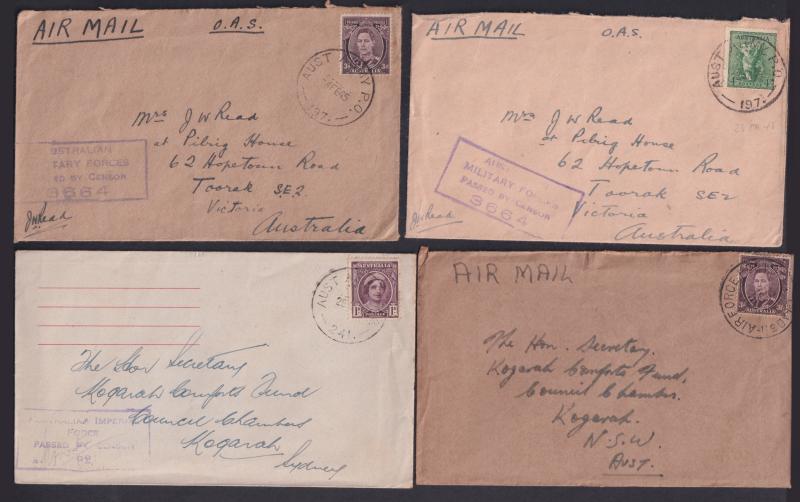 AIR MAIL
O.A.S.
AUST P.O.
197.
AUSTRALIA
Mrs J W Read
at Pilrig House
62 Hopetown Road
Toorak SE2.
Victoria
Australia
USTRALIAN
TARY FORCES
ED BY CENSOR
3664
JWRead
AIR MAIL
O.A.S.
AUSTRALIA
AUST P.O.
197.
Mrs J W Read
at Pilrig House
62 Hopetown Road
Toorak SE2
Victoria
Australia
MILITARY FORCES
PASSED BY CENSOR
3664
JWRead
AUSTRALIA
AUST
241.
The Hon Secretary
Kogarah Comforts Fund
Council Chambers
Kogarah
Sydney
AUSTRALIAN IMPERIAL
FORCE
PASSED BY CENSOR
AIR MAIL
AUSTRALIA
AIR FORCE
The Hon. Secretary.
Kogarah Comforts Fund,
Council Chambers.
Kogarah.
N.S.W.
AUST.